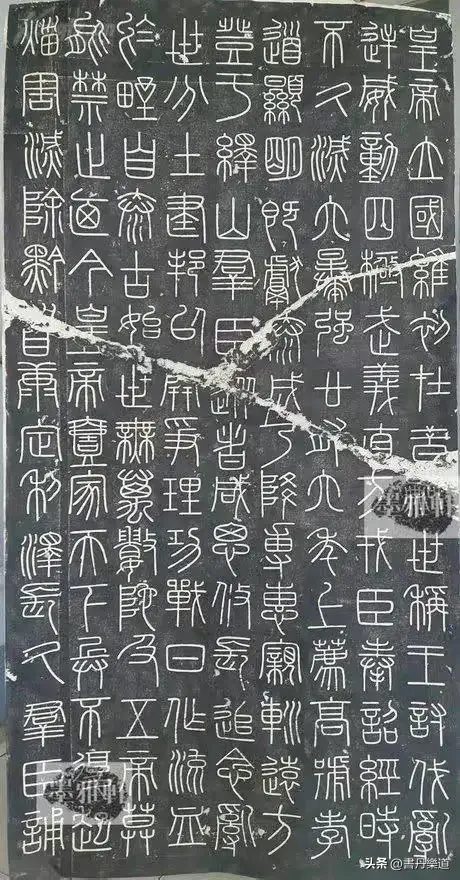 皇帝立國維初在昔世稱王討伐亂
逆威動四極武義直方戎臣奉詔經時
不久滅六暴強廿有六年上薦高號孝
道顯明既獻泰成乃降專惠親巡遠方
登于繹山羣臣從者咸思攸長追念亂
世分土建邦以開爭理功戰日作流血
於野自泰古始世無萬數陀及五帝莫
能禁止迺今皇帝壹家天下兵不復起
災害滅除黔首康定利澤長久羣臣誦
头条 @書丹樂道